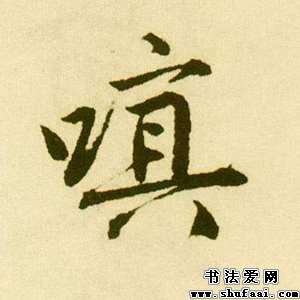 嗔
书法爱网
www.shufaai.com